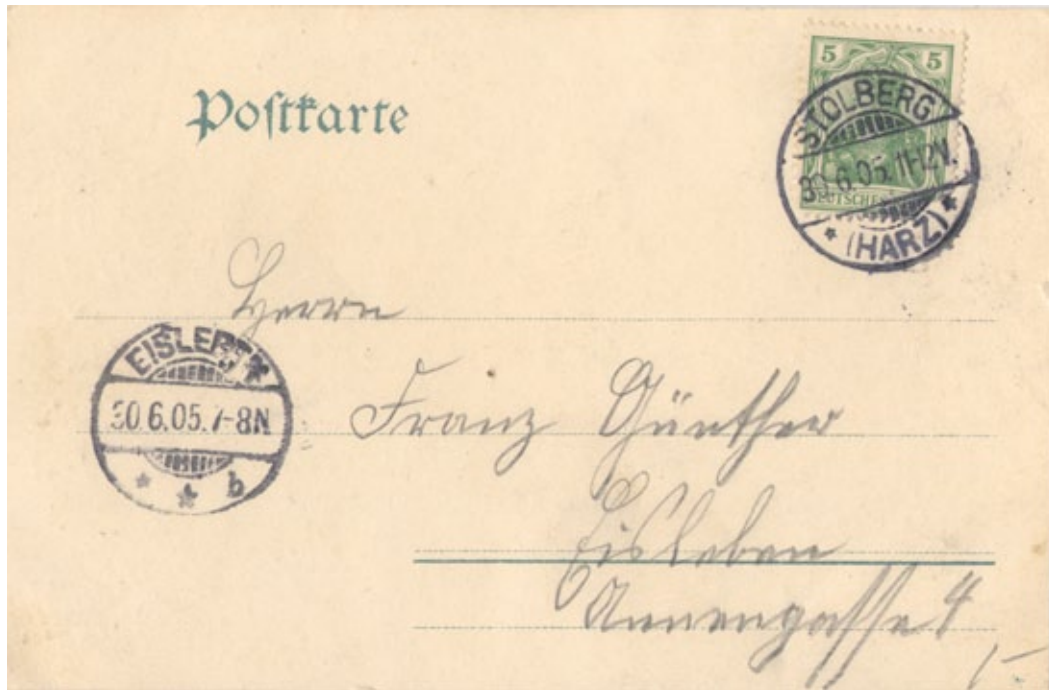 Postkarte
5 5
STOLBERG
30.6.05.11-12V.
* (HARZ) *
Herrn
EISLEBEN
30.6.05.7-8N
* * b
Franz Günther
Eisleben
Annengasse 4